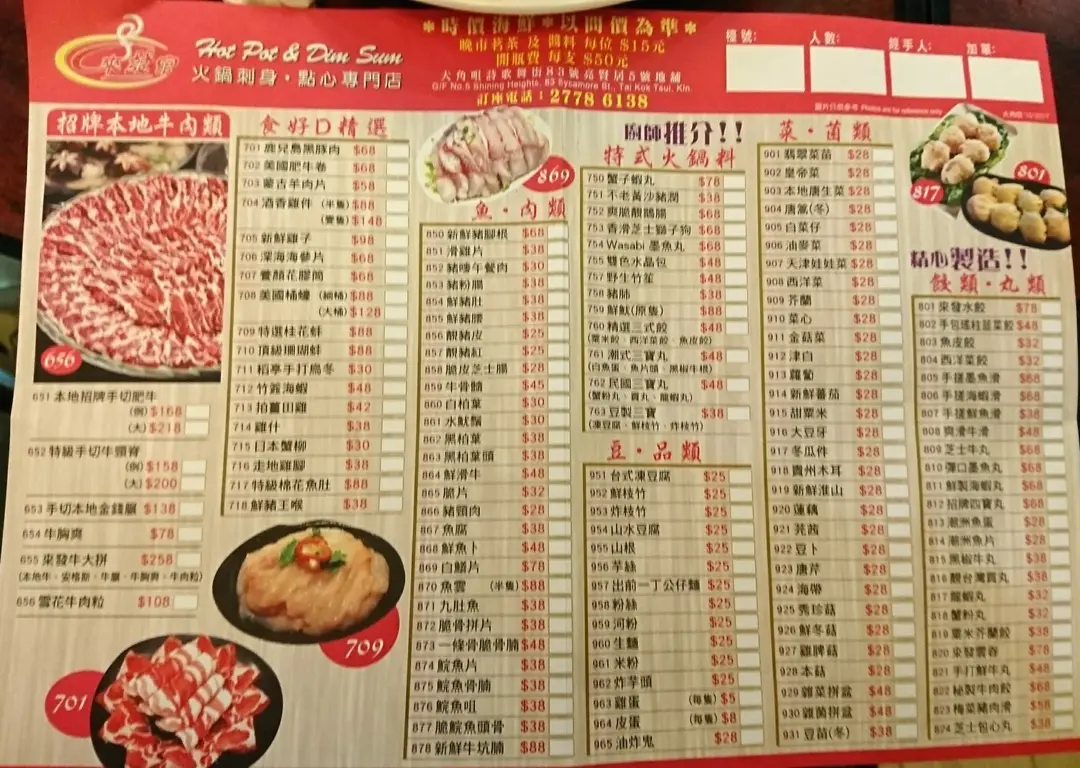 Hot Pot & Dim Sum
火鍋刺身・點心專門店
*時價海鮮*以問價為準*
晚市茗茶 及 醬料 每位 $15元
開瓶費 每支 $50元
大角咀詩歌舞街83號亮賢居5號地舖
G/F No.5 Shining Heights, 83 Sycamore St., Tai Kok Tsui, Kln.
訂座電話：2778 6138
檯號：
人數：
經手人：
加單：
圖片只供參考 Photos are for reference only
招牌本地牛肉類
656
651 本地招牌手切肥牛
(例) $168
(大) $218
652 特級手切牛頸脊
(例) $158
(大) $200
653 手切本地金錢𦟌 $138
654 牛胸爽 $78
655 來發牛大拼 $258
(本地牛、安格斯、牛𦟌、牛胸爽、牛肉粒)
656 雪花牛肉粒 $108
701
食好D精選
701 鹿兒島黑豚肉 $68
702 美國肥牛卷 $68
703 蒙古羊肉片 $58
704 酒香雞件 (半隻) $88
(壹隻) $148
705 新鮮雞子 $98
706 深海海參片 $68
707 養顏花膠筒 $68
708 美國桶蠔 (細桶) $88
(大桶) $128
709 特選桂花蚌 $88
710 頂級珊瑚蚌 $88
711 稻亭手打烏冬 $30
712 竹簽海蝦 $48
713 拍薑田雞 $42
714 雞什 $38
715 日本蟹柳 $30
716 走地雞腳 $38
717 特級棉花魚肚 $88
718 鮮豬王喉 $38
709
869
魚・肉類
850 新鮮豬腳根 $68
851 滑雞片 $38
852 豬嘜午餐肉 $30
853 豬粉腸 $38
854 鮮豬肚 $38
855 鮮豬腰 $38
856 靚豬皮 $25
857 靚豬紅 $25
858 脆皮芝士腸 $28
859 牛骨髓 $45
860 白柏葉 $30
861 水魷鬚 $30
862 黑柏葉 $38
863 黑柏葉頭 $38
864 鮮滑牛 $48
865 脆片 $32
866 豬頸肉 $28
867 魚腐 $38
868 鮮魚卜 $48
869 白鱔片 $78
870 魚雲 (半隻) $88
871 九肚魚 $38
872 脆骨拼片 $38
873 一條骨脆骨腩 $48
874 鯇魚片 $38
875 鯇魚骨腩 $38
876 鯇魚咀 $38
877 脆鯇魚頭骨 $38
878 新鮮牛坑腩 $88
廚師推介!!
特式火鍋料
750 蟹子蝦丸 $78
751 不老黃沙豬潤 $38
752 爽脆靚鵝腸 $68
753 香滑芝士獅子狗 $68
754 Wasabi 墨魚丸 $68
755 雙色水晶包 $48
757 野生竹笙 $48
758 豬肺 $38
759 鮮魷(原隻) $88
760 精選三式餃 $48
(粟米餃、西洋菜餃、魚皮餃)
761 潮式三寶丸 $48
(白魚蛋、魚片頭、黑椒牛根)
762 民國三寶丸 $48
(蟹粉丸、貢丸、龍蝦丸)
763 豆製三寶 $38
(凍豆腐、鮮枝竹、炸枝竹)
豆・品類
951 台式凍豆腐 $25
952 鮮枝竹 $25
953 炸枝竹 $25
954 山水豆腐 $25
955 山根 $25
956 芋絲 $25
957 出前一丁公仔麵 $25
958 粉絲 $25
959 河粉 $25
960 生麵 $25
961 米粉 $25
962 炸芋頭 $25
963 雞蛋 (每隻) $5
964 皮蛋 (每隻) $8
965 油炸鬼 $28
菜・菌類
901 翡翠菜苗 $28
902 皇帝菜 $28
903 本地唐生菜 $28
904 唐蒿(冬) $28
905 白菜仔 $28
906 油麥菜 $28
907 天津娃娃菜 $28
908 西洋菜 $28
909 芥蘭 $28
910 菜心 $28
911 金菇菜 $28
912 津白 $28
913 蘿蔔 $28
914 新鮮蕃茄 $28
915 甜粟米 $28
916 大豆牙 $28
917 冬瓜件 $28
918 貴州木耳 $28
919 新鮮淮山 $28
920 蓮藕 $28
921 芫茜 $28
922 豆卜 $28
923 唐芹 $28
924 海帶 $28
925 秀珍菇 $28
926 鮮冬菇 $28
927 雞脾菇 $28
928 本菇 $28
929 雜菜拼盆 $48
930 雜菌拼盆 $48
931 豆苗(冬) $38
817
801
精心製造!!
餃類・丸類
801 來發水餃 $78
802 手包瑤柱韮菜餃 $48
803 魚皮餃 $32
804 西洋菜餃 $32
805 手搓墨魚滑 $68
806 手搓海蝦滑 $68
807 手搓鮮魚滑 $38
808 爽滑牛滑 $48
809 芝士牛丸 $68
810 彈口墨魚丸 $68
811 鮮製海蝦丸 $68
812 招牌四寶丸 $68
813 潮洲魚蛋 $28
814 潮洲魚片 $28
815 黑椒牛丸 $38
816 靚台灣貢丸 $38
817 龍蝦丸 $32
818 蟹粉丸 $32
819 粟米芥蘭餃 $38
820 來發雲吞 $78
821 手打鮮牛丸 $48
822 秘製牛肉餃 $68
823 梅菜豬肉滑 $58
824 芝士包心丸 $38